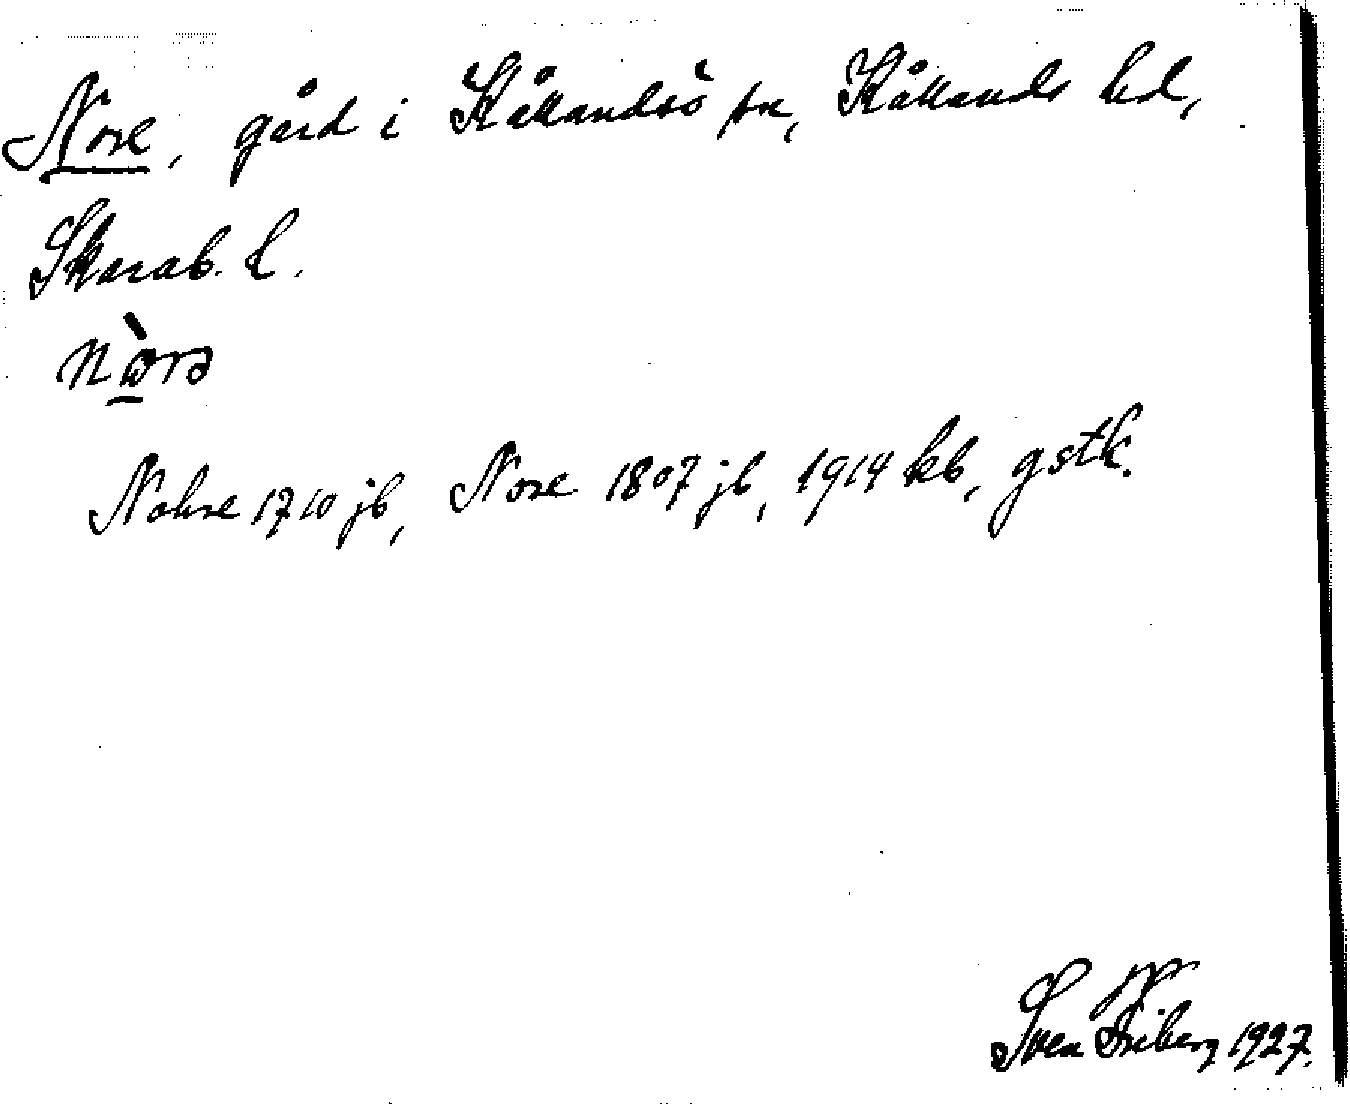 Nore, gård i Kållandsö sn, Kållands hd,
Skarab. l.
Nohre 1710 jb, Nore 1807 jb, 1914 kb, gstk.
Sven Friberg 1927.